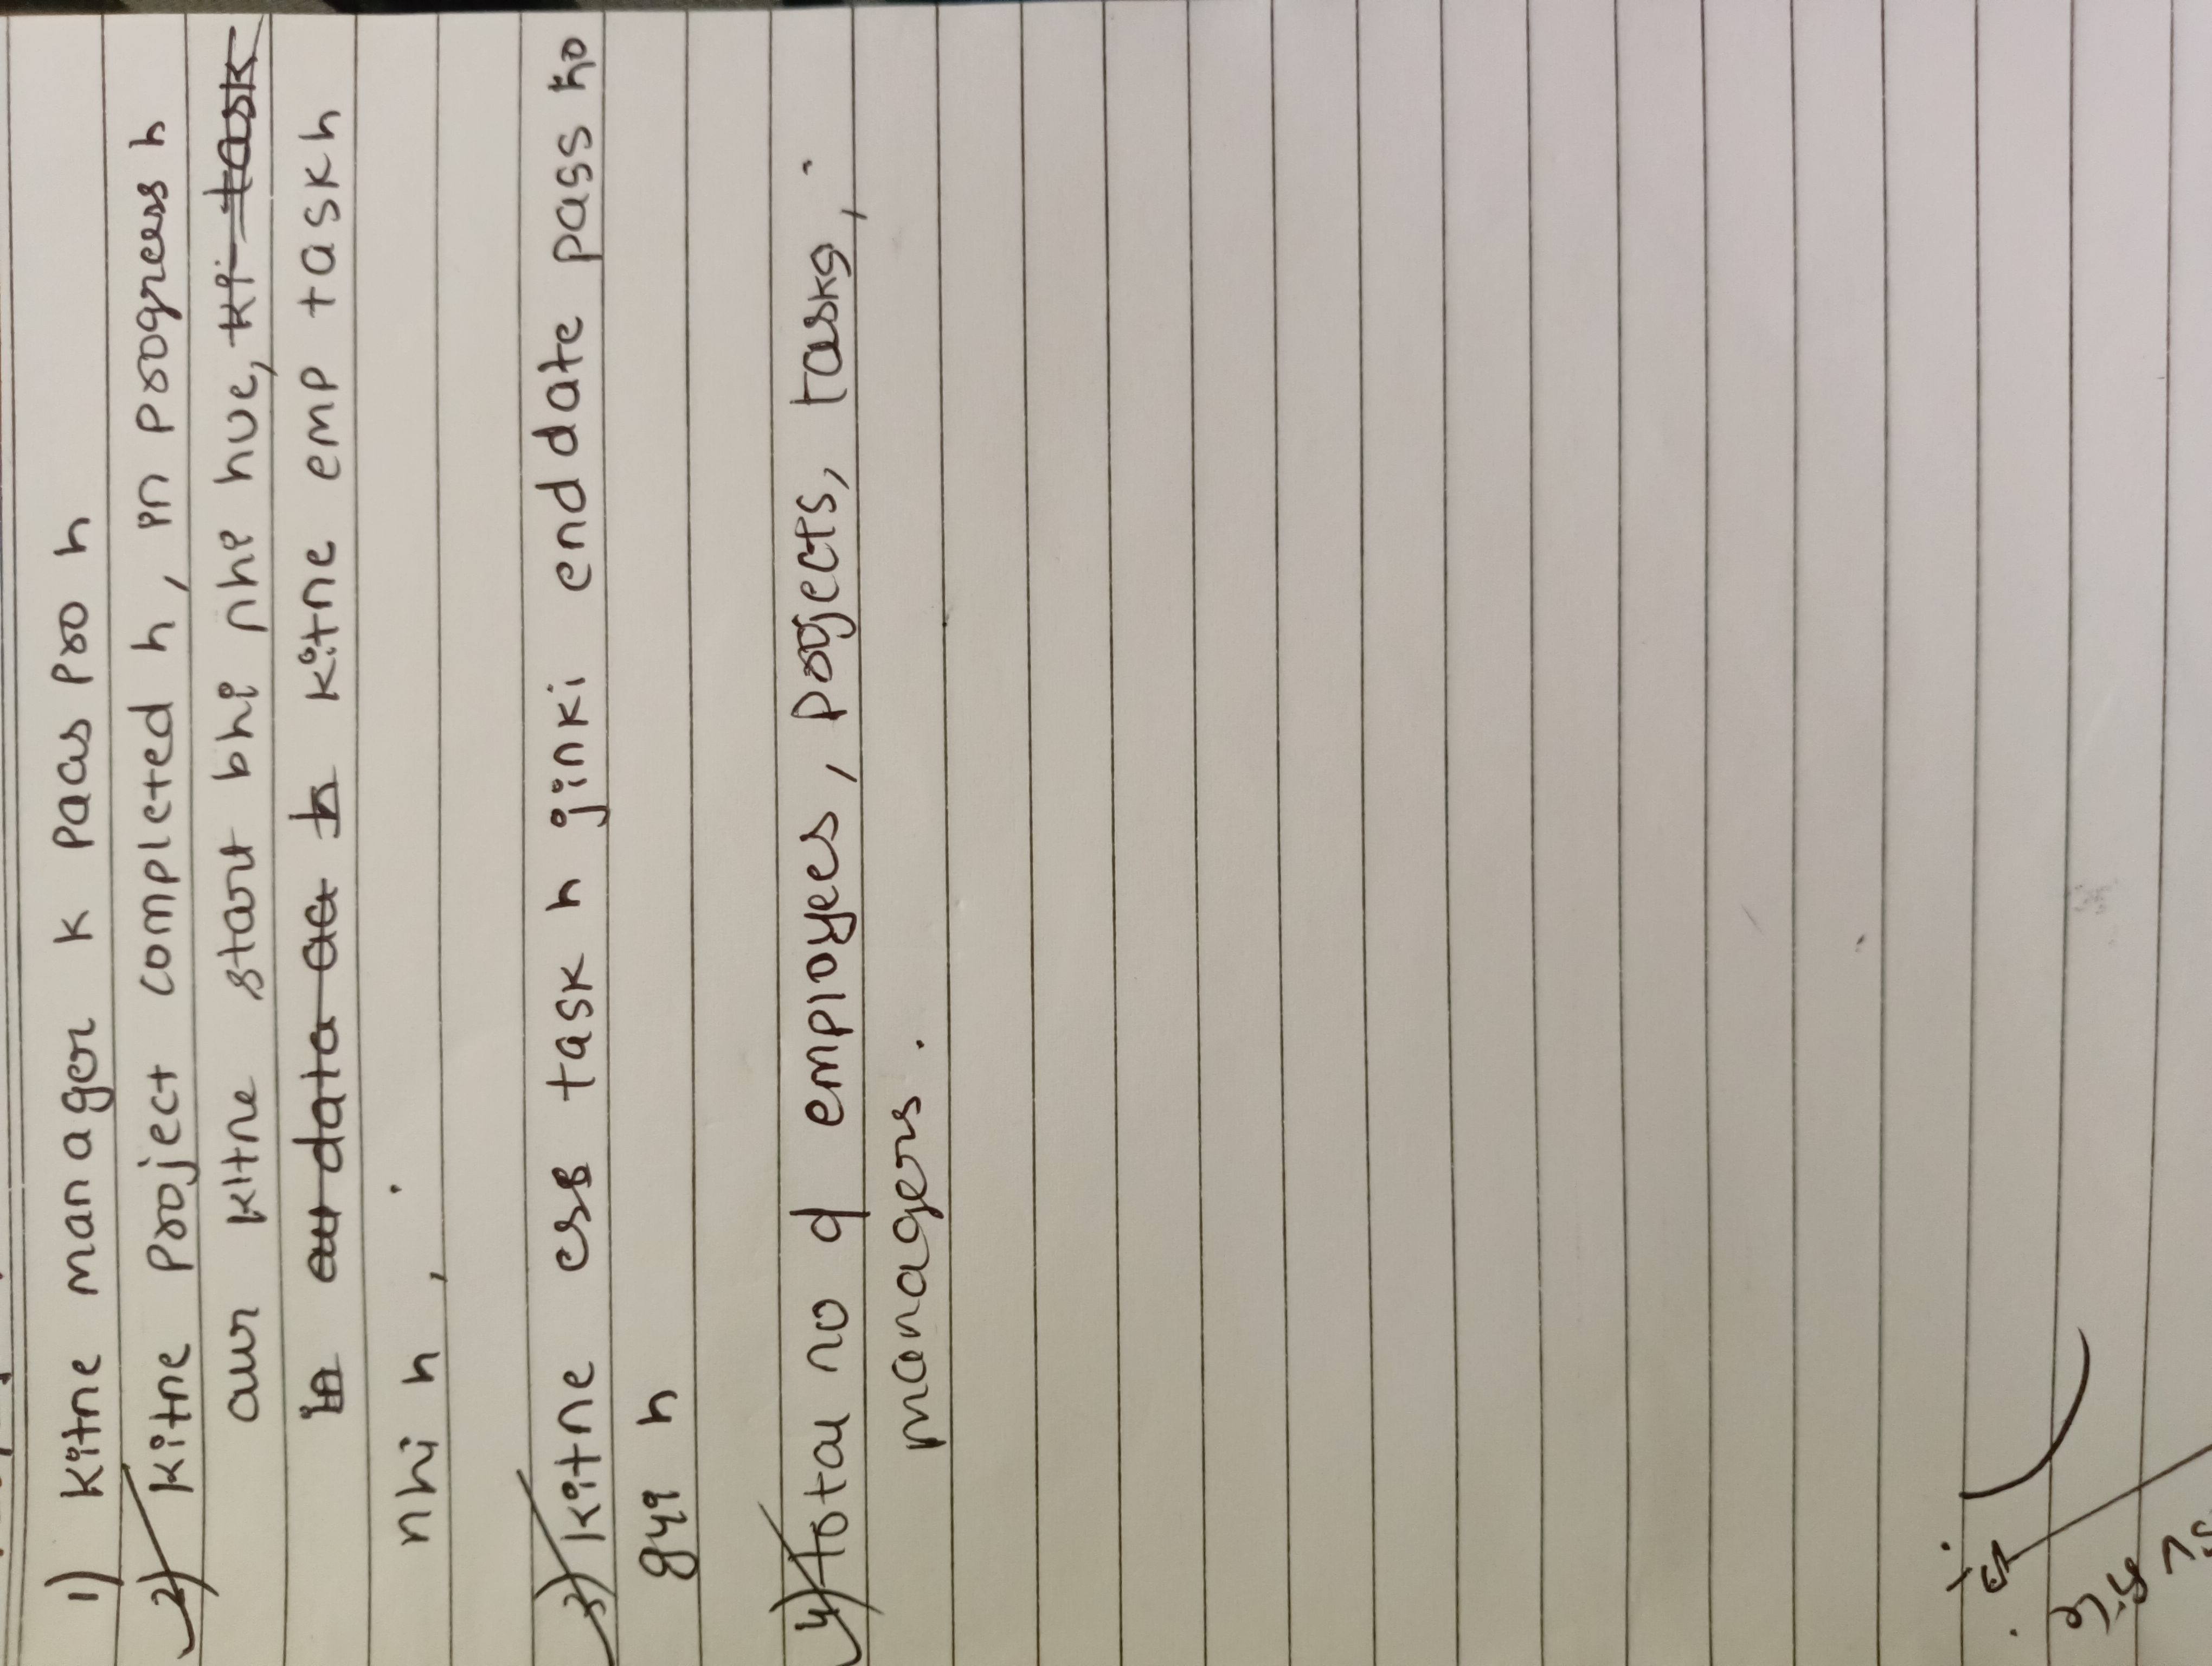 1) Kitne manager k paas pro h
2) Kitne project completed h, in progress h
aur kitne start bhi nhi hue, ki task
in au data aa h kitne emp task h
nhi h ,
3) Kitne ese task h jinki end date pass ho
gyi h
4) total no of employees, Projects, tasks,
managers.